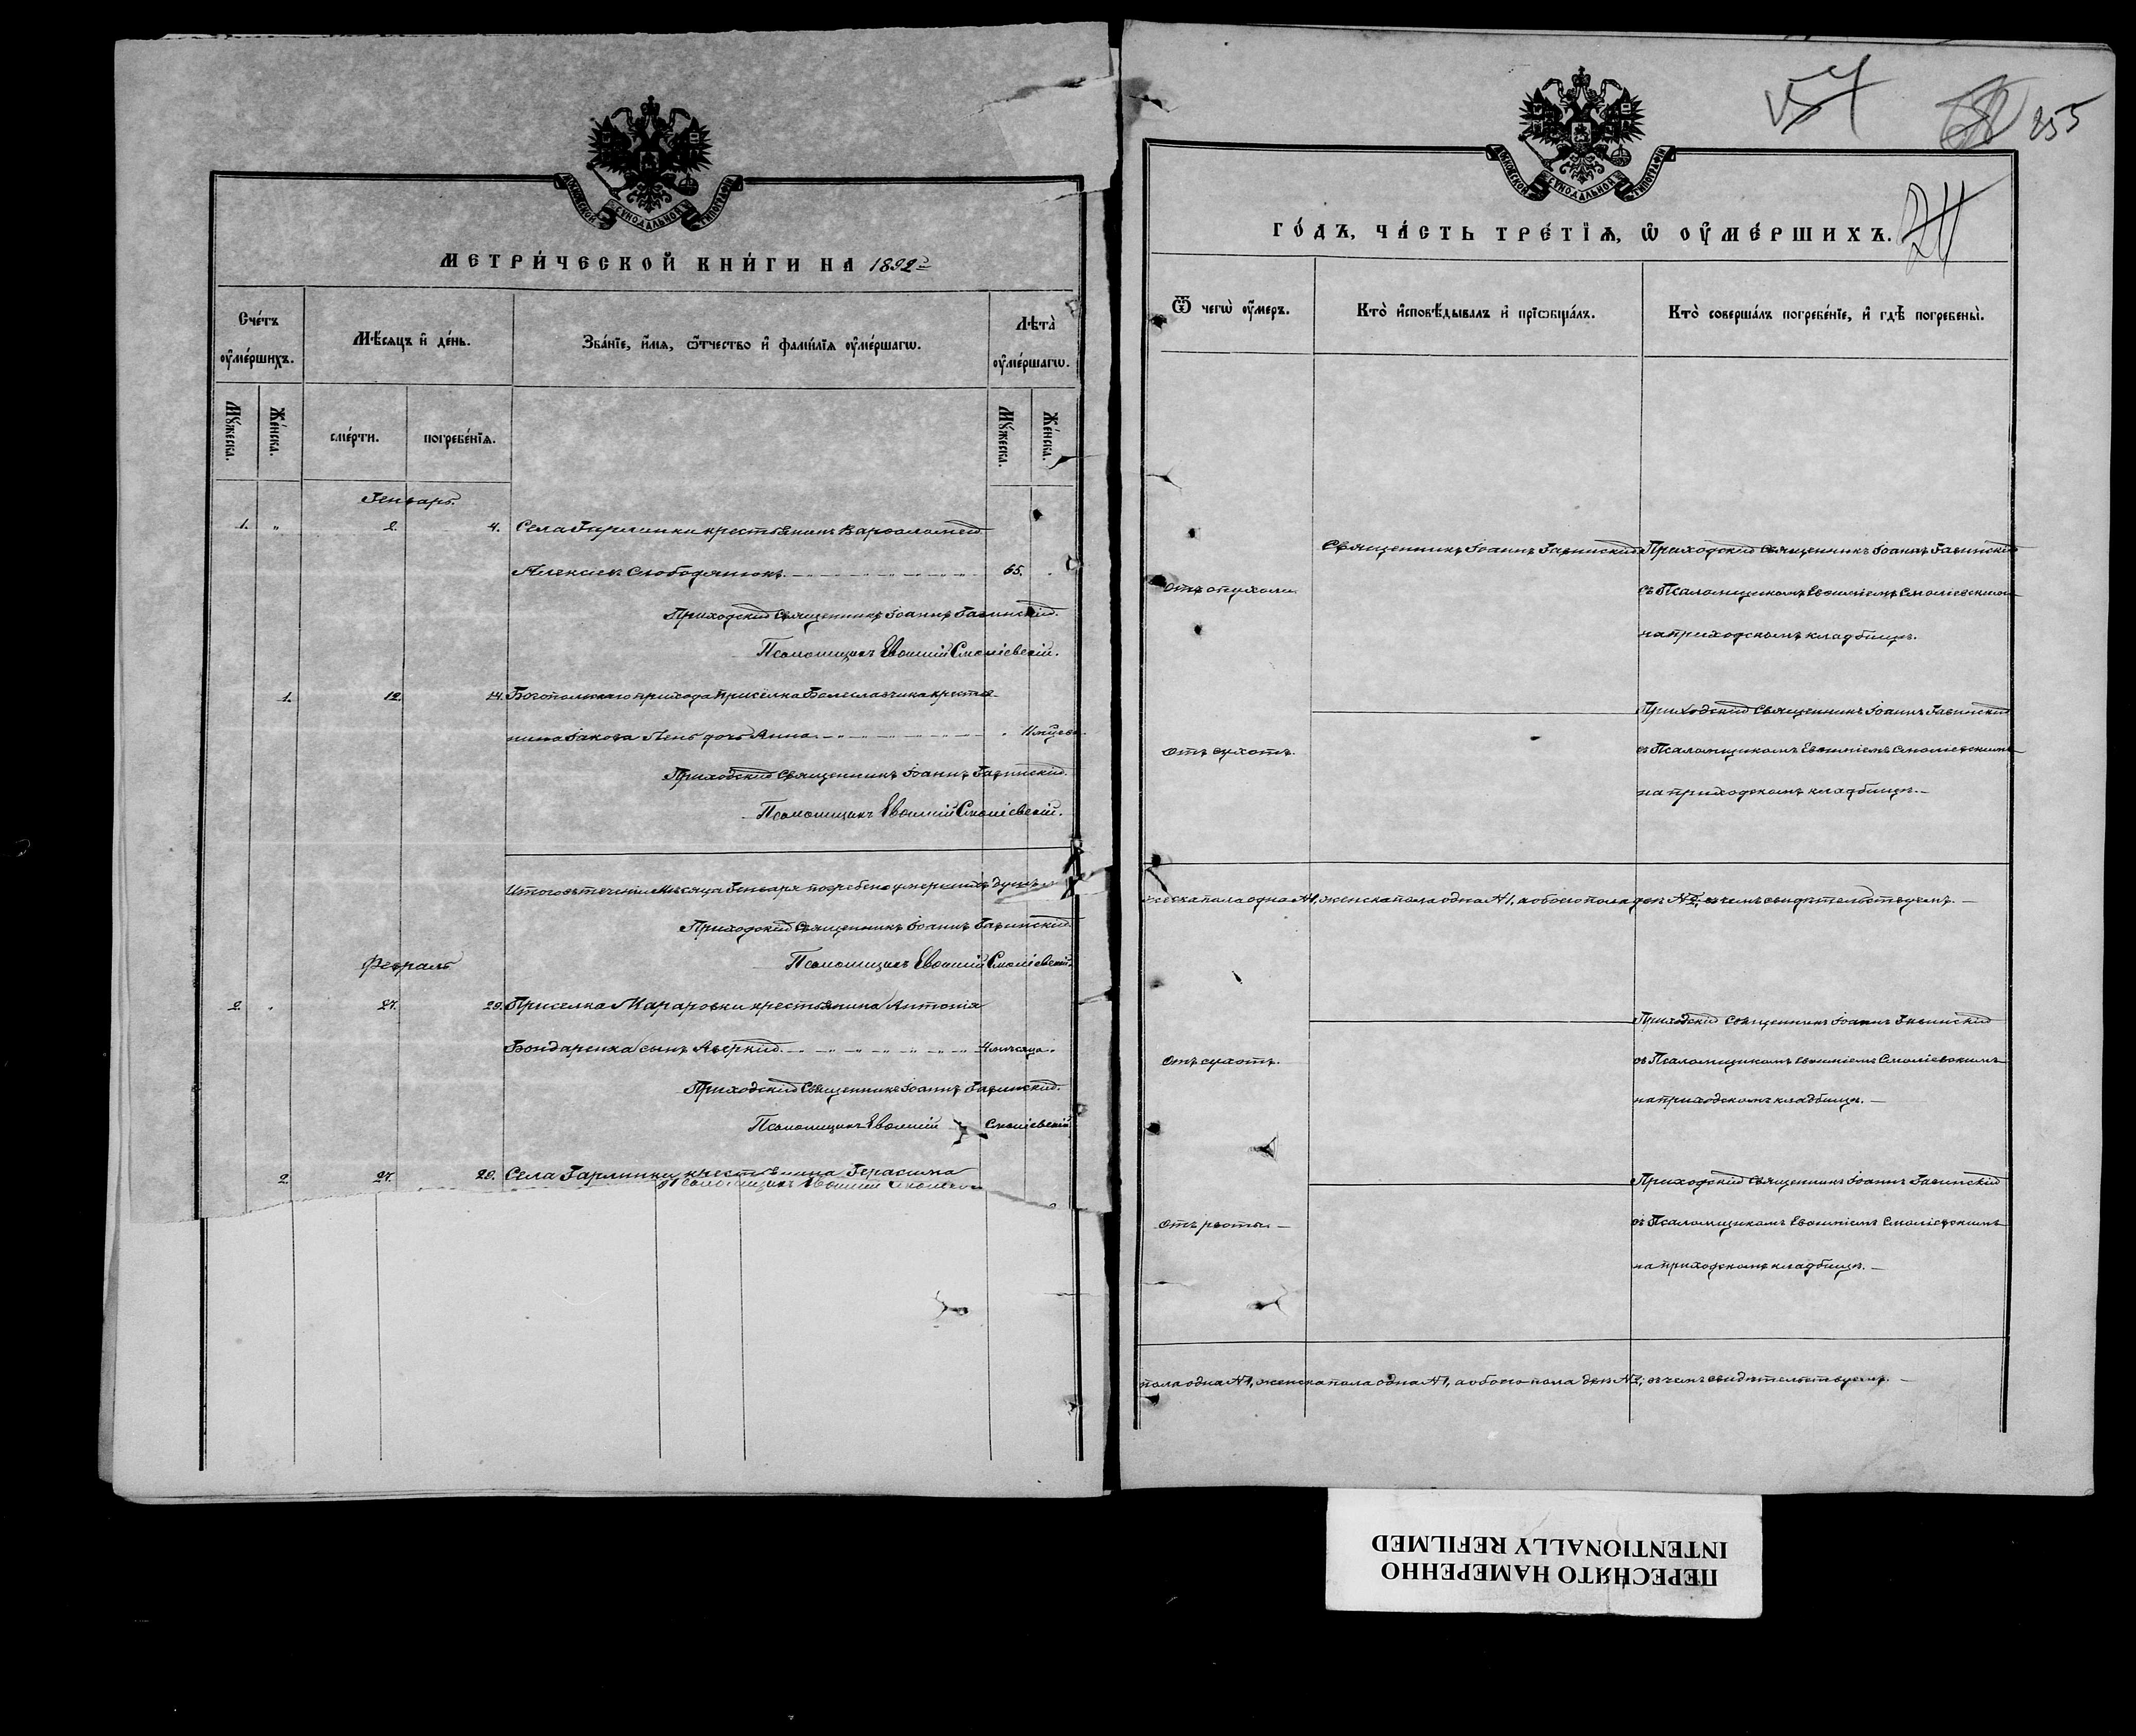 МОСКОВСКОЙ СУНОДАЛЬНОЙ ТИПОГРАФІИ
МЕТРИ́ЧЕСКОЙ КНИ́ГИ НА 1892 г.
Сче́тъ оу҆ме́ршихъ.
Мѣ́сяцъ и҆ де́нь.
Зва́нїе, и҆́мѧ, ѻ҆́тчество и҆ фами́лїѧ оу҆ме́ршагѡ.
Лѣта̀ оу҆ме́ршагѡ.
Мꙋ́жеска.
Же́нска.
сме́рти.
погребе́нїѧ.
Мꙋ́жеска.
Же́нска.
Генварь.
1. „ 2. 4. Села Гарлинки крестьянинъ Варѳоломей
Алексѣевъ Слободянюкъ. 65.
Приходскій Священникъ Іоаннъ
Псаломщикъ Евѳимій Смолієвскій.
1. 12. 14. прихода Приселка крестья-
нина Іакова Лень дочь Анна. 11 мѣсяц.
Приходскій Священникъ Іоаннъ
Псаломщикъ Евѳимій Смолієвскій.
Итого въ теченіи мѣсяца Генваря погребено умершихъ душъ
Приходскій Священникъ Іоаннъ
Февраль Псаломщикъ Евѳимій Смолієвскій.
2. „ 27. 29. Приселка крестьянина Антонія
Бондаренка сынъ Аверкій. 4 мѣсяца.
Приходскій Священникъ Іоаннъ
Псаломщикъ Евѳимій Смолієвскій.
2. 27. 29. Села Гарлинки крестьянина Герасима
Псаломщикъ Евѳимій
54
255
МОСКОВСКОЙ СУНОДАЛЬНОЙ ТИПОГРАФІИ
ГО́ДЪ, ЧА́СТЬ ТРЕ́ТЇѦ, Ѡ҆ ОУ҆МЕ́РШИХЪ.
Ѿ чегѡ̀ оу҆́меръ.
Кто̀ и҆сповѣ́дывалъ и҆ прїѡбща́лъ.
Кто̀ соверша́лъ погребе́нїе, и҆ гдѣ̀ погребены̀.
Священникъ Іоаннъ Приходскій Священникъ Іоаннъ
Отъ опухоли. съ Псаломщикомъ Евѳиміемъ Смолієвскимъ
на приходскомъ кладбищѣ.
Приходскій Священникъ Іоаннъ
Отъ сухотъ. съ Псаломщикомъ Евѳиміемъ Смолієвскимъ
на приходскомъ кладбищѣ.
жеска пола одна № 1, женска пола одна № 1, а обоего пола двѣ № 2, въ чемъ свидѣтельствуемъ.
Приходскій Священникъ Іоаннъ
Отъ сухотъ. съ Псаломщикомъ Евѳиміемъ Смолієвскимъ
на приходскомъ кладбищѣ.
Приходскій Священникъ Іоаннъ
Отъ рвоты. съ Псаломщикомъ Евѳиміемъ Смолієвскимъ
на приходскомъ кладбищѣ.
пола одна № 1, женска пола одна № 1, а обоего пола двѣ № 2, въ чемъ свидѣтельствуемъ.
ПЕРЕСНЯТО НАМЕРЕННО
INTENTIONALLY REFILMED